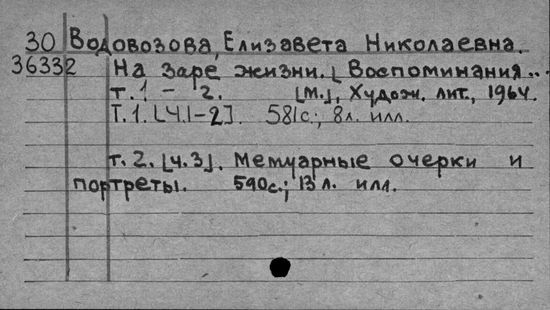 30 Водовозова, Елизавета Николаевна.
36332 На заре жизни. [Воспоминания...
т. 1 - 2. [М.], Худож. лит., 1964.
Т. 1. [Ч.1-2]. 581с.; 8л. илл.
т. 2. [ч.3]. Мемуарные очерки и
портреты. 590с.; 13 л. илл.